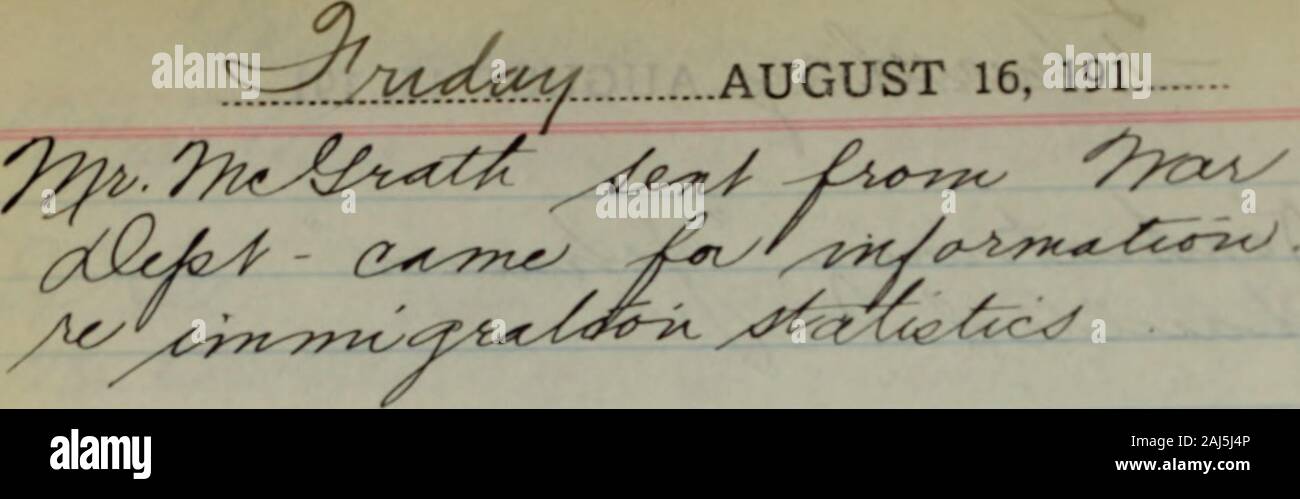 Friday AUGUST 16, 191
Mr. McGrath sent from War
Dept - came for information
re immigration statistics
alamy
Image ID: 2AJ5J4P
www.alamy.com
a
a
a
a
a
a